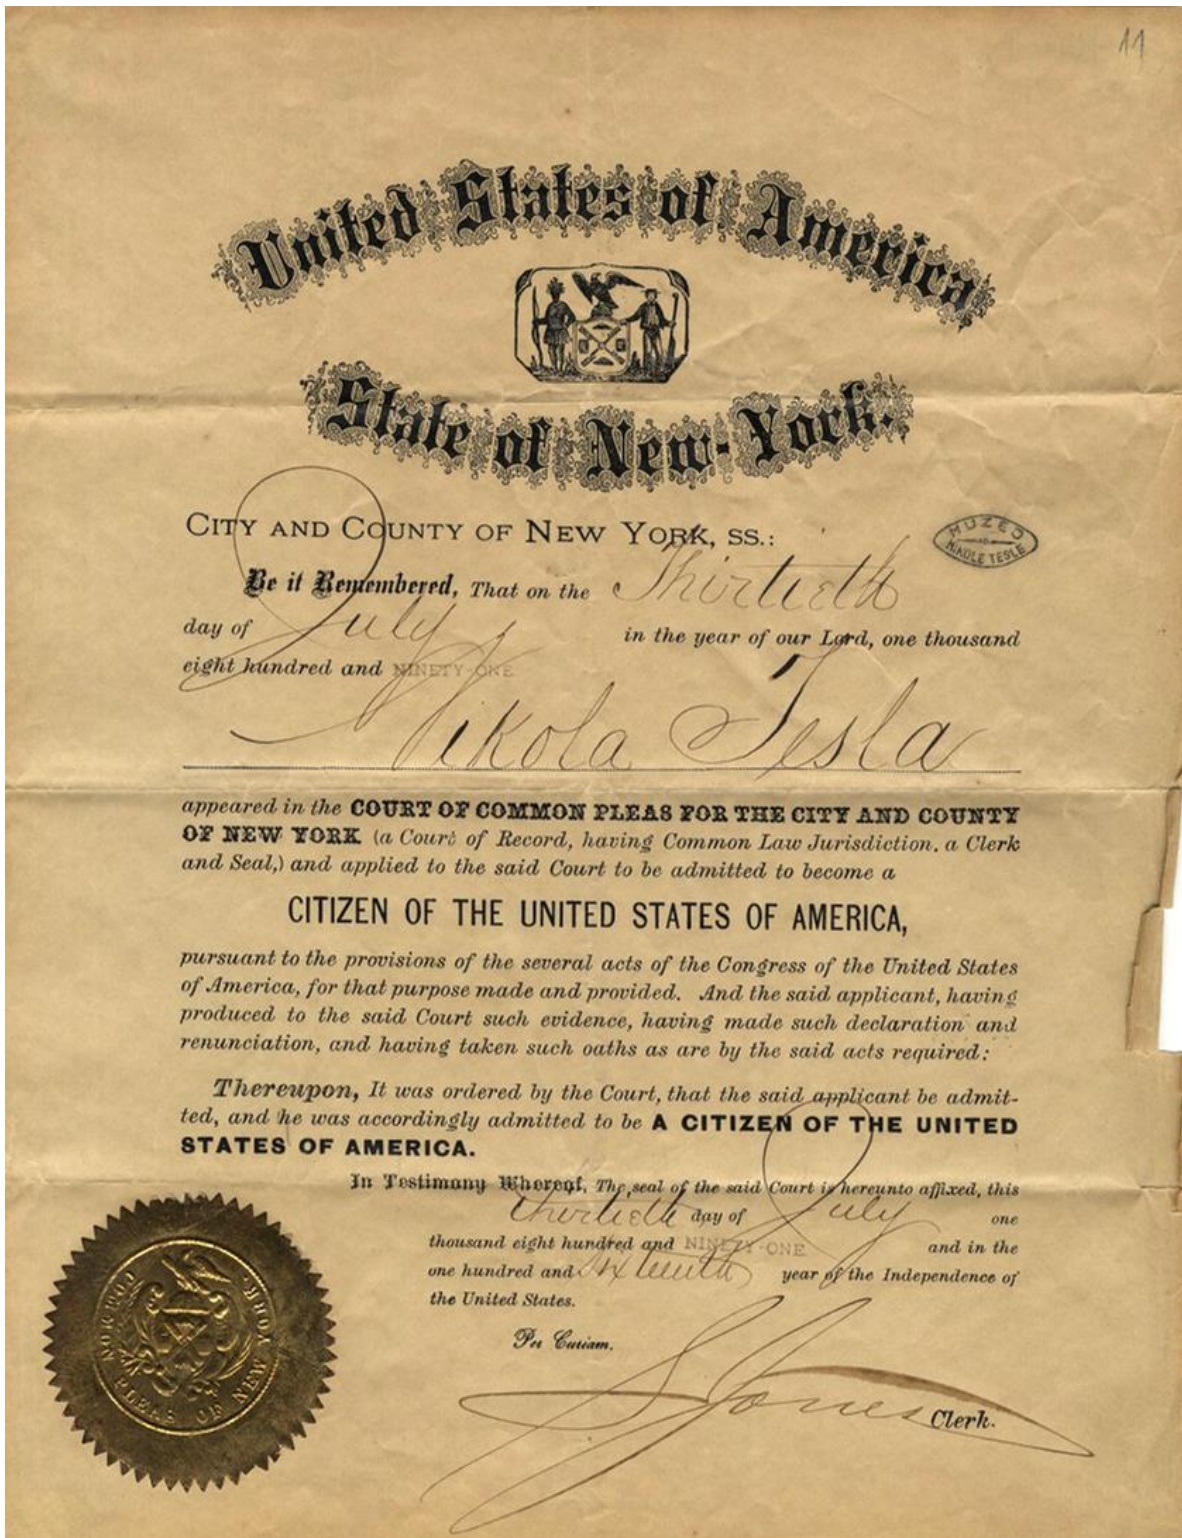 11
United States of America
State of New-York.
CITY AND COUNTY OF NEW YORK, SS.:
MUZEJ
NIKOLE TESLE
Be it Remembered, That on the Thirtieth
day of July in the year of our Lord, one thousand
eight hundred and NINETY-ONE
Nikola Tesla
appeared in the COURT OF COMMON PLEAS FOR THE CITY AND COUNTY
OF NEW YORK (a Court of Record, having Common Law Jurisdiction, a Clerk
and Seal,) and applied to the said Court to be admitted to become a
CITIZEN OF THE UNITED STATES OF AMERICA,
pursuant to the provisions of the several acts of the Congress of the United States
of America, for that purpose made and provided. And the said applicant, having
produced to the said Court such evidence, having made such declaration and
renunciation, and having taken such oaths as are by the said acts required:
Thereupon, It was ordered by the Court, that the said applicant be admit-
ted, and he was accordingly admitted to be A CITIZEN OF THE UNITED
STATES OF AMERICA.
In Testimony Whereof, The seal of the said Court is hereunto affixed, this
thirtieth day of July one
thousand eight hundred and NINETY-ONE and in the
one hundred and sixteenth year of the Independence of
the United States.
Per Curiam.
S Jones Clerk.
COMMON PLEAS OF NEW YORK